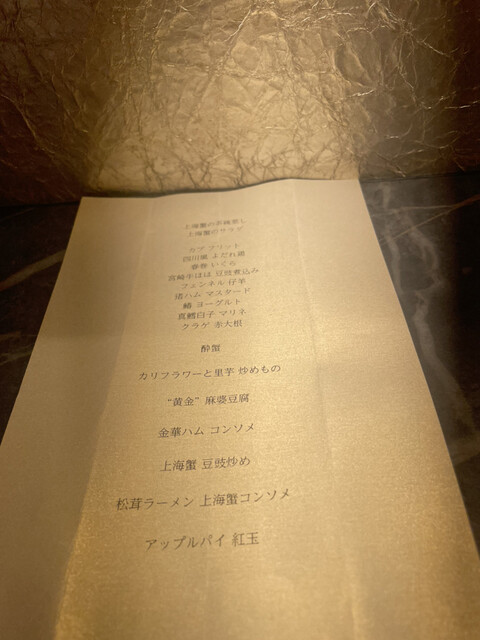 上海蟹の茶碗蒸し
上海蟹のサラダ
カブ フリット
四川風 よだれ鶏
春巻 いくら
宮崎牛ほほ 豆豉煮込み
フェンネル 仔羊
猪ハム マスタード
鰆 ヨーグルト
真鱈白子 マリネ
クラゲ 赤大根
酔蟹
カリフラワーと里芋 炒めもの
“黄金” 麻婆豆腐
金華ハム コンソメ
上海蟹 豆豉炒め
松茸ラーメン 上海蟹コンソメ
アップルパイ 紅玉